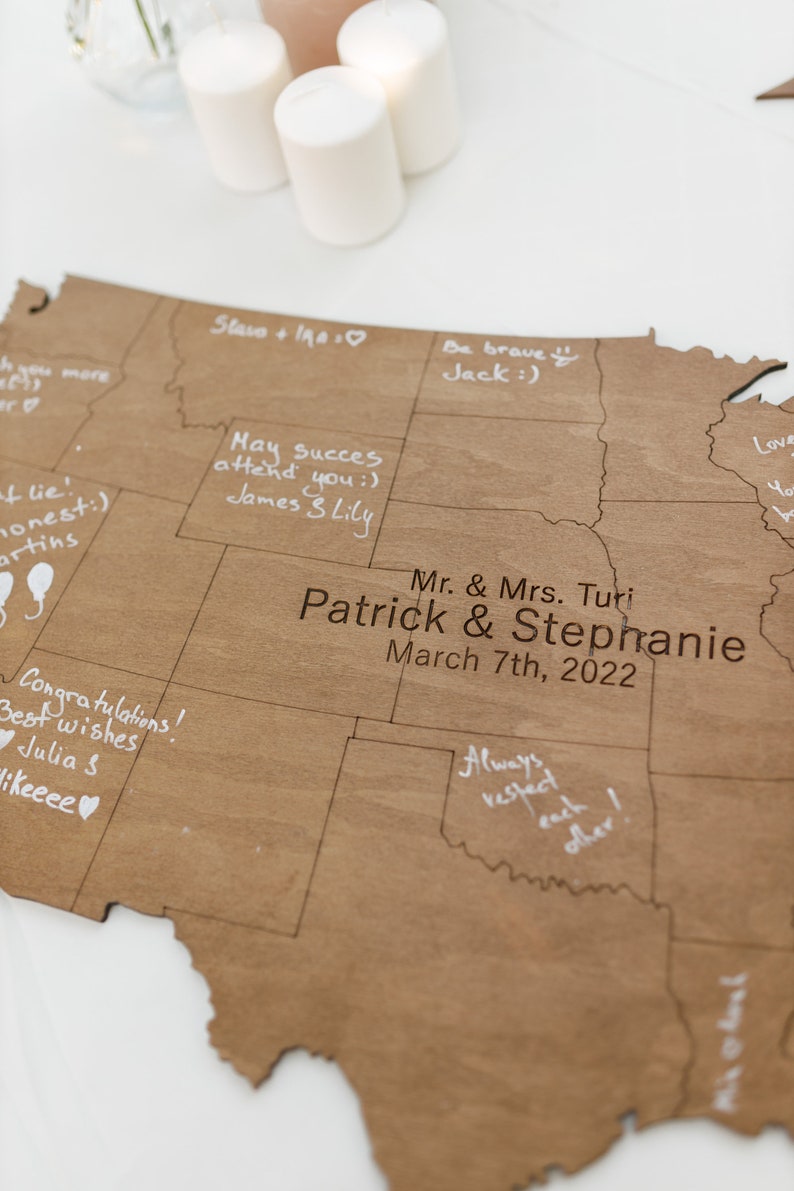 Slava + IRA = ♡
Be brave
Jack :)
you more
May succes
attend you :)
James & Lily
lie!
honest :)
artins
Love
Mr. & Mrs. Turi
Patrick & Stephanie
March 7th, 2022
Congratulations!
Best wishes
Julia &
Mikeeee
Always
respect
each
other!